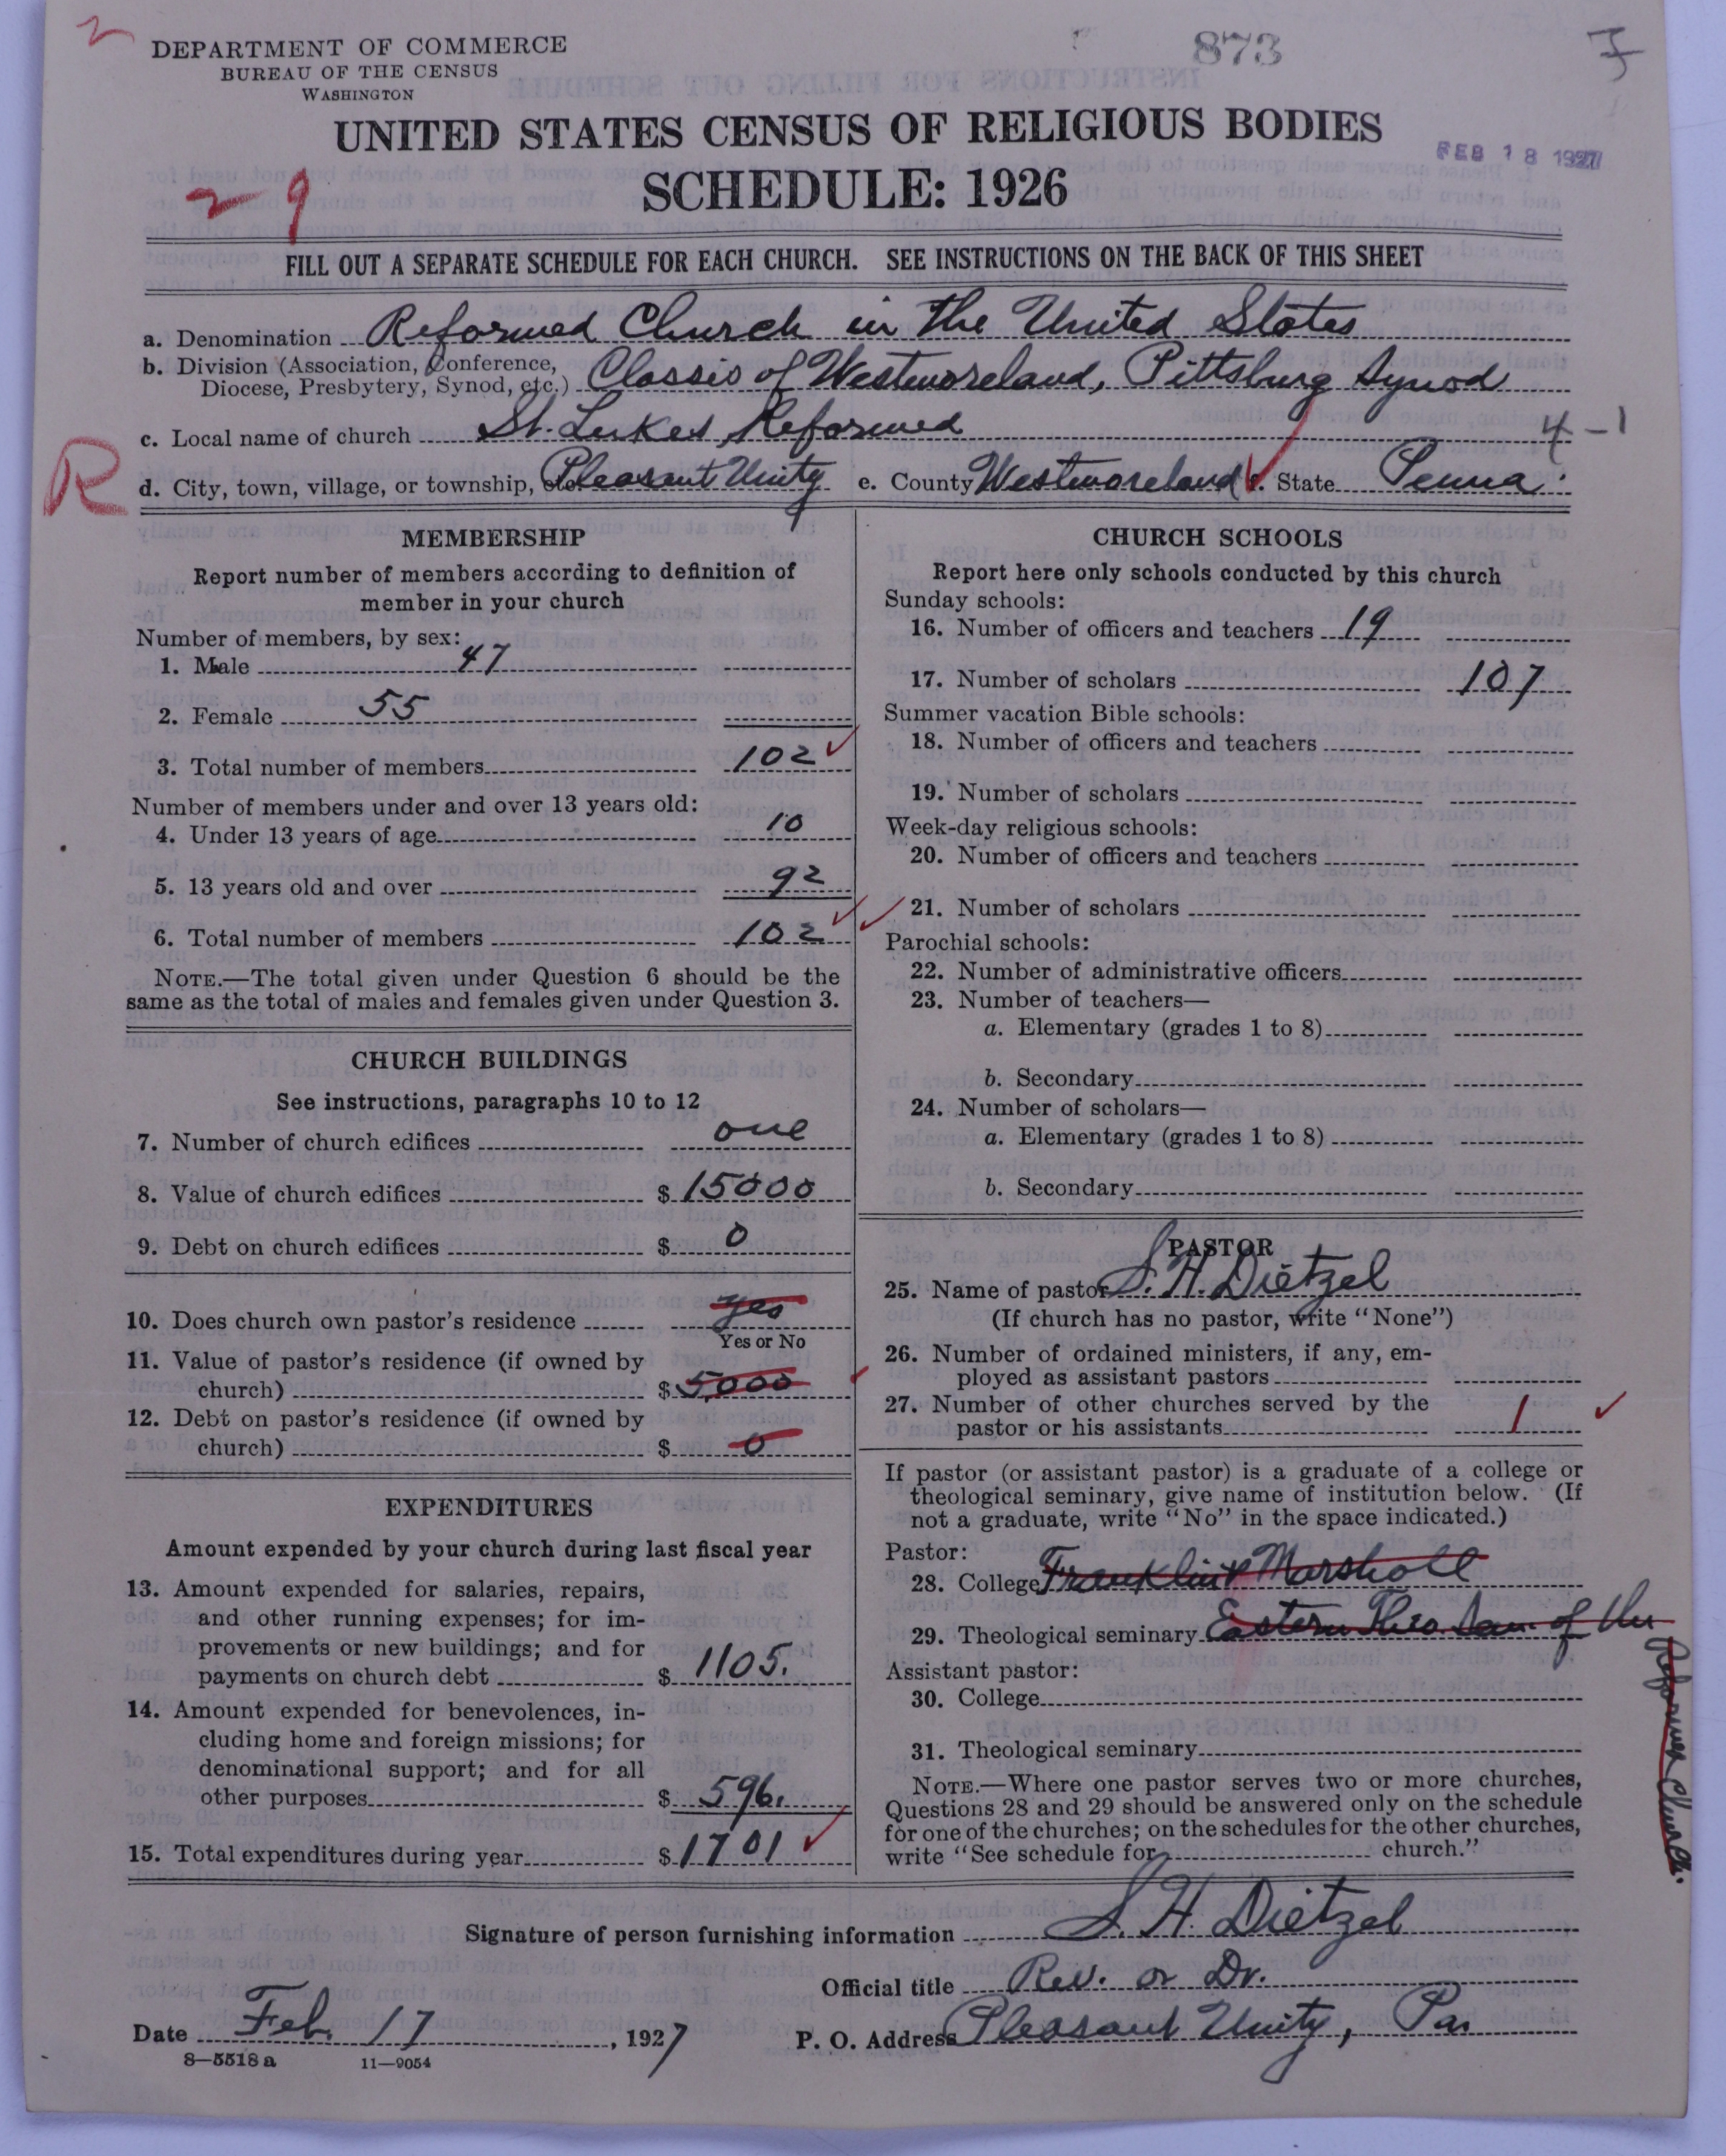 2
DEPARTMENT OF COMMERCE
BUREAU OF THE CENSUS
WASHINGTON
873
7
UNITED STATES CENSUS OF RELIGIOUS BODIES
FEB 18 1927
SCHEDULE: 1926
29
FILL OUT A SEPARATE SCHEDULE FOR EACH CHURCH. SEE INSTRUCTIONS ON THE BACK OF THIS SHEET
a. Denomination Reformed Church in the United States
b. Division (Association, Conference,
Diocese, Presbytery, Synod, etc.) Classis of Westmoreland, Pittsburg Synod
c. Local name of church St. Lukes Reformed
4-1
R
d. City, town, village, or township, etc. Pleasant Unity e. County Westmoreland f. State Penna.
MEMBERSHIP
Report number of members according to definition of
member in your church
Number of members, by sex:
1. Male 47
2. Female 55
3. Total number of members 102
Number of members under and over 13 years old:
4. Under 13 years of age 10
5. 13 years old and over 92
6. Total number of members 102
NOTE.—The total given under Question 6 should be the
same as the total of males and females given under Question 3.
CHURCH BUILDINGS
See instructions, paragraphs 10 to 12
7. Number of church edifices one
8. Value of church edifices $ 15000
9. Debt on church edifices $ 0
10. Does church own pastor's residence yes
Yes or No
11. Value of pastor's residence (if owned by
church) $ 5,000
12. Debt on pastor's residence (if owned by
church) $ 0
EXPENDITURES
Amount expended by your church during last fiscal year
13. Amount expended for salaries, repairs,
and other running expenses; for im-
provements or new buildings; and for
payments on church debt $ 1105.
14. Amount expended for benevolences, in-
cluding home and foreign missions; for
denominational support; and for all
other purposes $ 596.
15. Total expenditures during year $ 1701
CHURCH SCHOOLS
Report here only schools conducted by this church
Sunday schools:
16. Number of officers and teachers 19
17. Number of scholars 107
Summer vacation Bible schools:
18. Number of officers and teachers
19. Number of scholars
Week-day religious schools:
20. Number of officers and teachers
21. Number of scholars
Parochial schools:
22. Number of administrative officers
23. Number of teachers—
a. Elementary (grades 1 to 8)
b. Secondary
24. Number of scholars—
a. Elementary (grades 1 to 8)
b. Secondary
PASTOR
25. Name of pastor S. H. Dietzel
(If church has no pastor, write "None")
26. Number of ordained ministers, if any, em-
ployed as assistant pastors
27. Number of other churches served by the
pastor or his assistants 1
If pastor (or assistant pastor) is a graduate of a college or
theological seminary, give name of institution below. (If
not a graduate, write "No" in the space indicated.)
Pastor:
28. College Franklin & Marshall
29. Theological seminary Eastern Theo. Sem. of the
Reformed Church.
Assistant pastor:
30. College
31. Theological seminary
NOTE.—Where one pastor serves two or more churches,
Questions 28 and 29 should be answered only on the schedule
for one of the churches; on the schedules for the other churches,
write "See schedule for church."
Signature of person furnishing information S. H. Dietzel
Official title Rev. or Dr.
Date Feb. 17, 1927
P. O. Address Pleasant Unity, Pa.
8—5518 a 11—9054